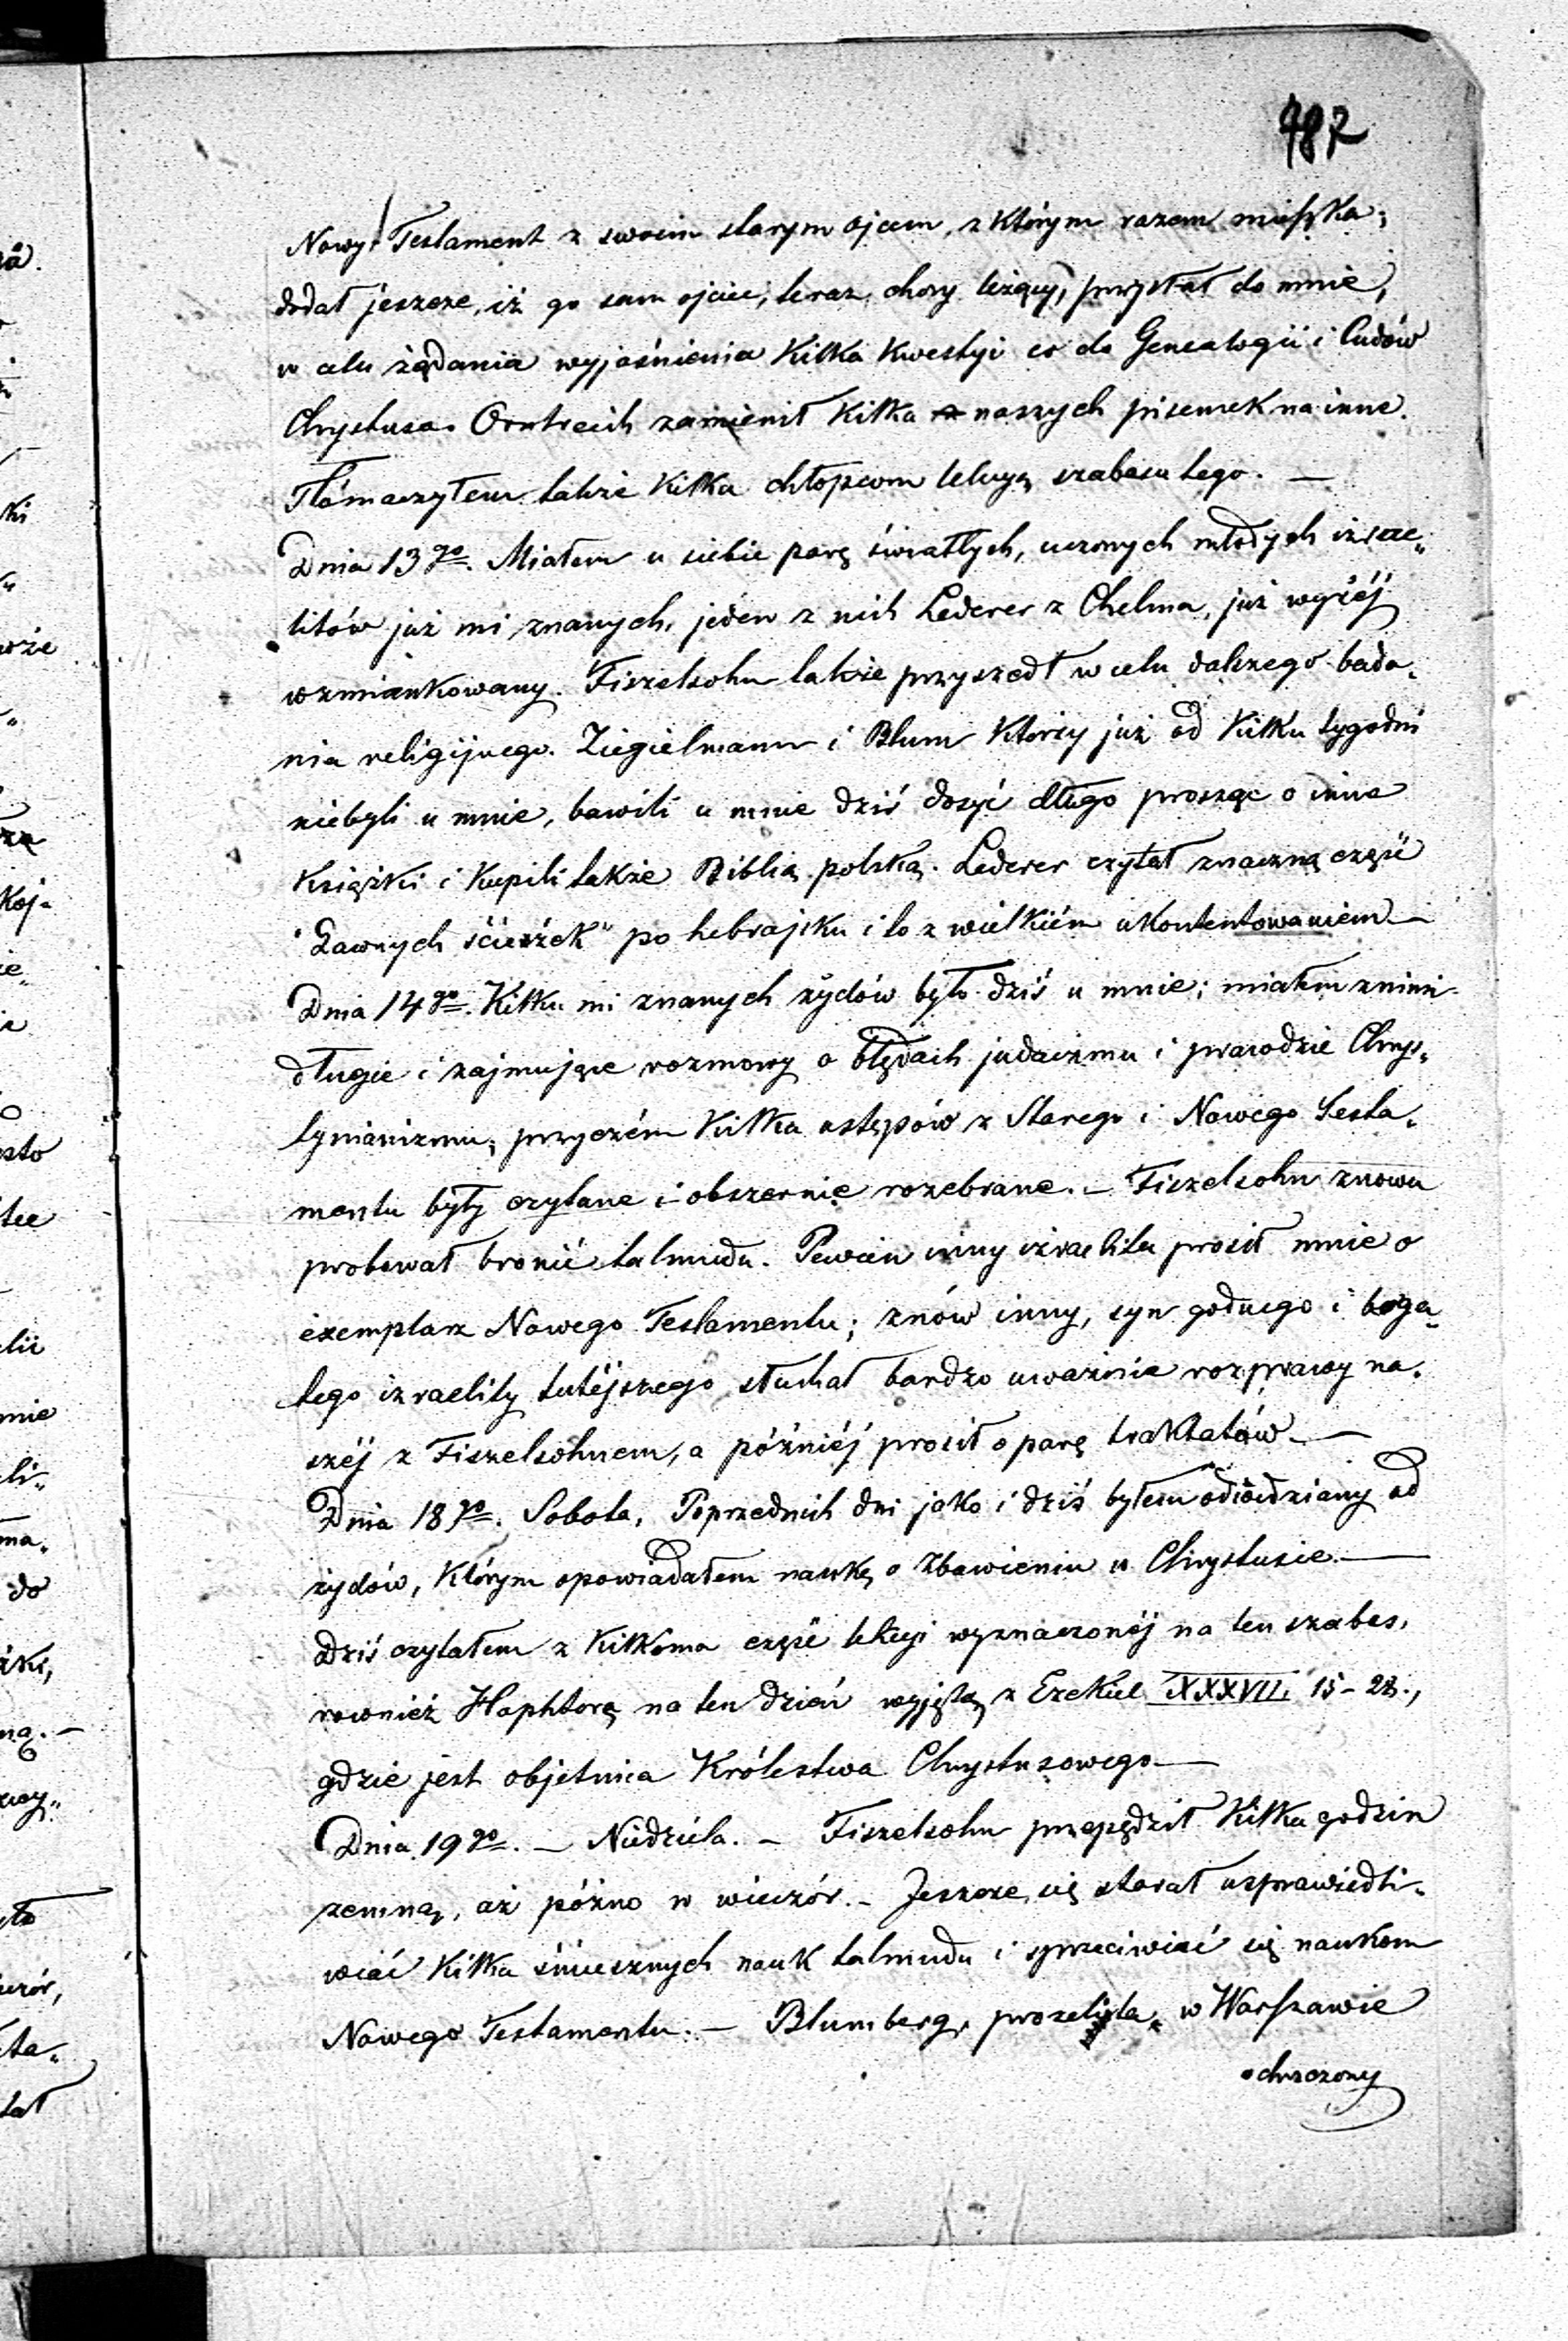 487
Nowy Testament z swoim starym ojcem, z którym razem mieszka;
dodał jeszcze, iż go sam ojciec, teraz, chory leżący, przysłał do mnie,
w celu żądania wyjaśnienia kilka kwestyi co do Genealogii i Cudów
Chrystusa. On trzech zamienił kilka naszych pisemek na inne.
Tłómaczyłem także kilka chłopcom lekcyą szabasu tego. —
Dnia 13go. Miałem u siebie parę światłych, uczonych młodych izrae„
litów już mi znanych, jeden z nich Lederer z Chelma, już wyżéj
wzmiankowany. Fiszelsohn także przyszedł w celu dalszego bada„
nia religijnego. Ziegielmann i Blum którzy już od kilku tygodni
niebyli u mnie, bawili u mnie dziś dosyć długo prosząc o inne
książki i kupili także Biblią polską. Lederer czytał znaczną część
"Dawnych ścieżek" po hebrajsku i to z wielkiém ukontentowaniem —
Dnia 14go. Kilku mi znanych żydów było dziś u mnie; miałem znimi
długie i zajmujące rozmowy o błędach judaizmu i prawodzie Chrys„
tynianizmu; przyczém kilka ustępów z Starego i Nowego Testa„
mentu były czytane i obszernie rozebrane. — Fiszelsohn znowu
probował bronić talmudu. Pewien inny izraelita prosił mnie o
exemplarz Nowego Testamentu; znów inny, syn godnego i boga„
tego izraelity tutéjszego słuchał bardzo uważnie rozprawy na„
széj z Fiszelsohnem, a późniéj prosił o parę traktatów. —
Dnia 18go. Sobota. Poprzednich dni jako i dziś byłem odwiedziany od
żydów, którym opowiadałem naukę o Zbawieniu w Chrystusie. —
Dziś czytałem z kilkoma część lekcyi wyznaczonéj na ten szabes,
rownież Haphtorą na ten dzień wyjętą z Ezekiel XXXVII. 15–28.,
gdzie jest objetnica Królestwa Chrystusowego —
Dnia 19go. — Niedziela. — Fiszelsohn przepędził kilka godzin
zemną, aż późno w wieczór. — Jeszcze się starał usprawiedli„
wiać kilka śmiesznych nauk talmudu i sprzeciwiać się naukom
Nowego Testamentu. — Blumberg, prozelita, w Warszawie
ochrzczony